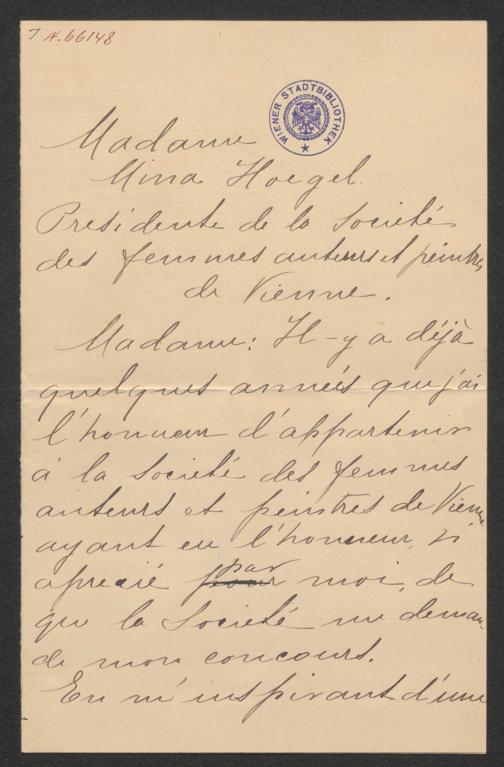 J.N. 66148
WIENER STADTBIBLIOTHEK
Madame
Mina Hoegel.
Presidente de la Societé
des femmes auteurs et peintres
de Vienne.
Madame: Il-y a déjà
quelques années que j'ai
l'honneur d'appartenir
à la Societé des femmes
auteurs et peintres de Vienne
ayant eu l'honneur, si
aprecié par moi, de
que la Societé me deman-
de mon concours.
En m'inspirant d'une